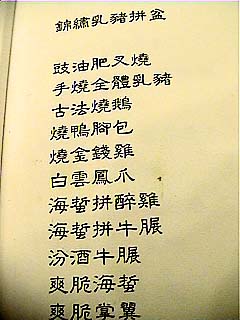 錦繡乳豬拼盆
豉油肥叉燒
手燒全體乳豬
古法燒鵝
燒鴨腳包
燒金錢雞
白雲鳳爪
海蜇拼醉雞
海蜇拼牛𦟌
汾酒牛𦟌
爽脆海蜇
爽脆掌翼